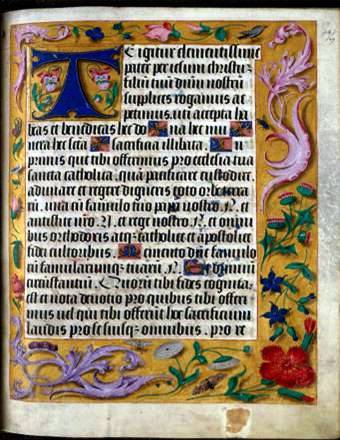 Te igitur clementissime
pater per iesum christu
filiu tuu dnm nostru
supplices rogamus ac
petimus. uti accepta ha
beas et benedicas hec do na hec mu
nera hec scta sacrificia illibita. In
primis que tibi offerimus pro ecclesia tua
sancta catholica. qua pacificare custodire.
adunare et regere digneris toto orbe terra
ru. una cu famulo tuo papa nostro N. et
antistite nro N. et rege nostro N. et omni
bus orthodoxis atq3 catholice et apostolice
fidei cultoribus. Memento dne famulo
ru famularumq3 tuaru N. et omniu
circustantiu. Quoru tibi fides cognita
est et nota deuotio pro quibus tibi offeri
mus uel qui tibi offerut hoc sacrificium
laudis pro se suisq3 omnibus. pro re